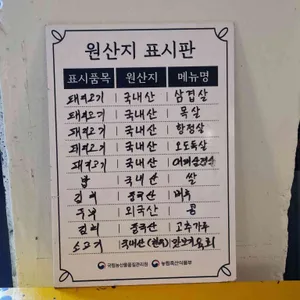 원산지 표시판
표시품목 원산지 메뉴명
돼지고기 국내산 삼겹살
돼지고기 국내산 목살
돼지고기 국내산 항정살
돼지고기 국내산 오도독살
돼지고기 국내산
쌀 국내산 쌀
김치 중국산 배추
두부 외국산 콩
김치 중국산 고추가루
소고기 국내산 (한우)
국립농산물품질관리원 농림축산식품부